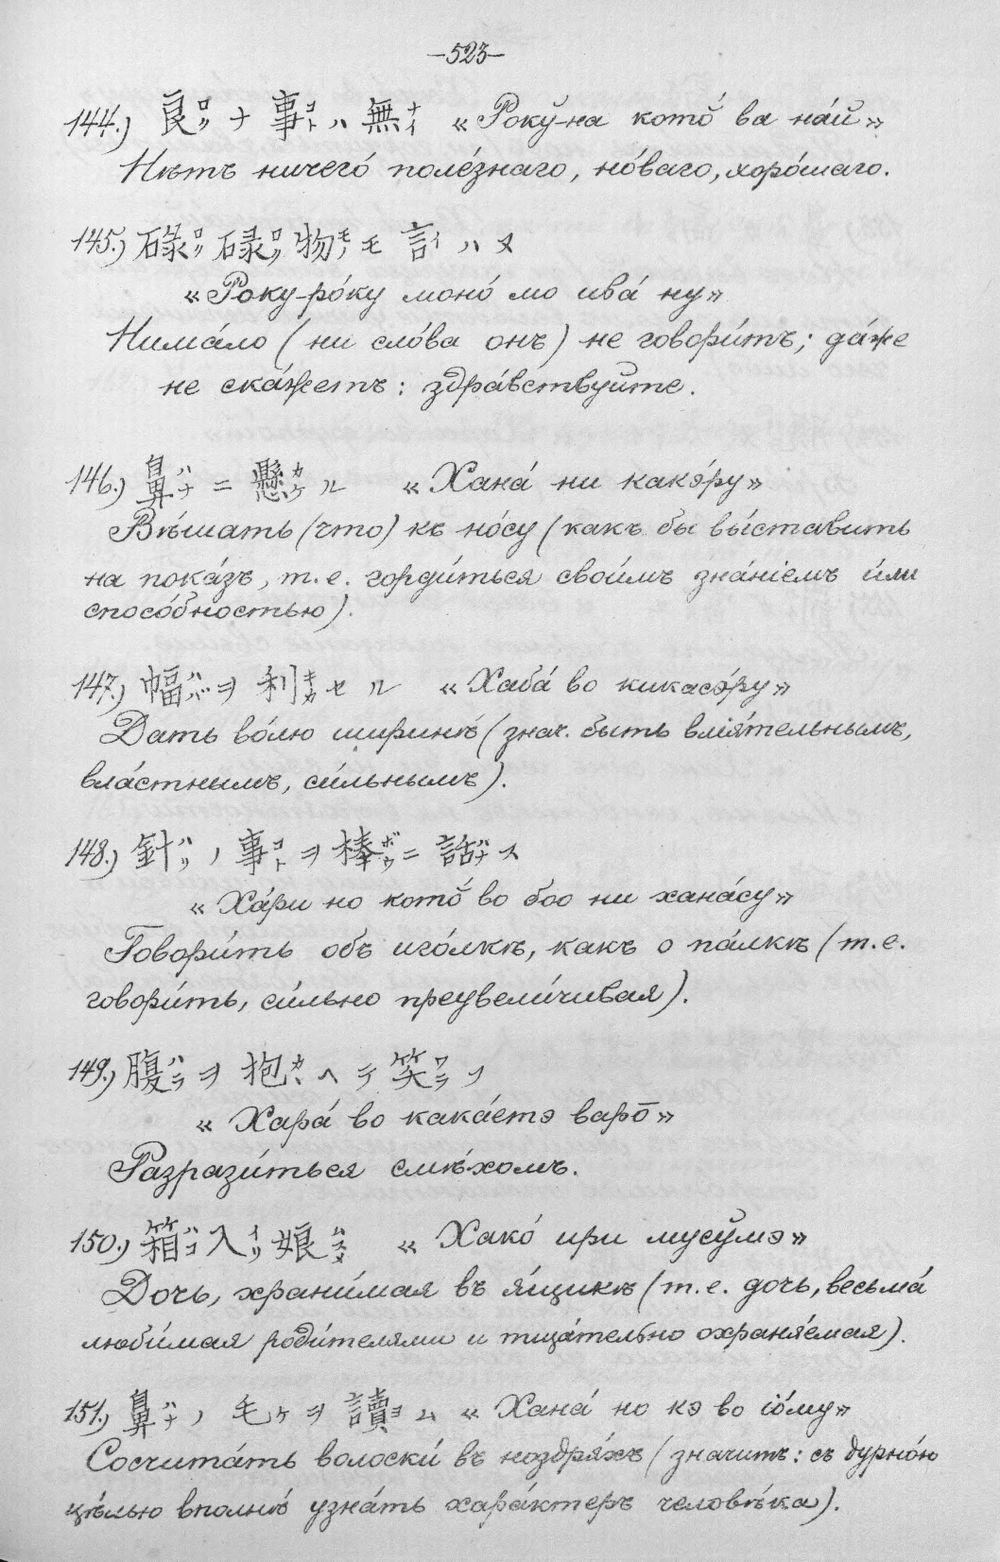 —523—
144.) 良ロクナ 事コトハ 無ナイ «Року́-на кото́ ва на́й»
Нѣтъ ничего́ поле́знаго, но́ваго, хоро́шаго.
145.) 碌ロク碌ロク物モノモ 言イハヌ
«Року-ро́ку моно́ мо ива́ ну»
Нима́ло (ни сло́ва онъ) не говори́тъ; да́же
не ска́жетъ: здра́вствуйте.
146.) 鼻ハナニ 懸カケル «Хана́ ни какэ́ру»
Вѣ́шать (что) къ но́су (какъ бы вы́ставить
на пока́зъ, т.е. горди́ться свои́мъ зна́ніемъ и́ли
спосо́бностью).
147.) 幅ハバヲ 利キカセル «Хаба́ во кикасэ́ру»
Дать во́лю ширинѣ́ (знач. быть влія́тельнымъ,
вла́стнымъ, си́льнымъ).
148.) 針ハリノ 事コトヲ 棒ボウニ 話ハナス
«Ха́ри но кото́ во боо ни хана́су»
Говори́ть объ иго́лкѣ, какъ о па́лкѣ (т.е.
говори́ть, си́льно преувели́чивая).
149.) 腹ハラヲ 抱カヽヘテ 笑ワラフ
«Хара́ во кака́етэ варо̄»
Разрази́ться смѣ́хомъ.
150.) 箱ハコ入イリ娘ムスメ «Хако́ ири мусу́мэ»
Дочь, храни́мая въ я́щикѣ (т.е. дочь, весьма́
люби́мая роди́телями и тща́тельно охраня́емая).
151.) 鼻ハナノ 毛ケヲ 讀ヨム «Хана́ но кэ во іо́му»
Сосчита́ть волоски́ въ ноздря́хъ (значитъ: съ дурно́ю
цѣ́лью вполнѣ́ узна́ть хара́ктеръ человѣ́ка).